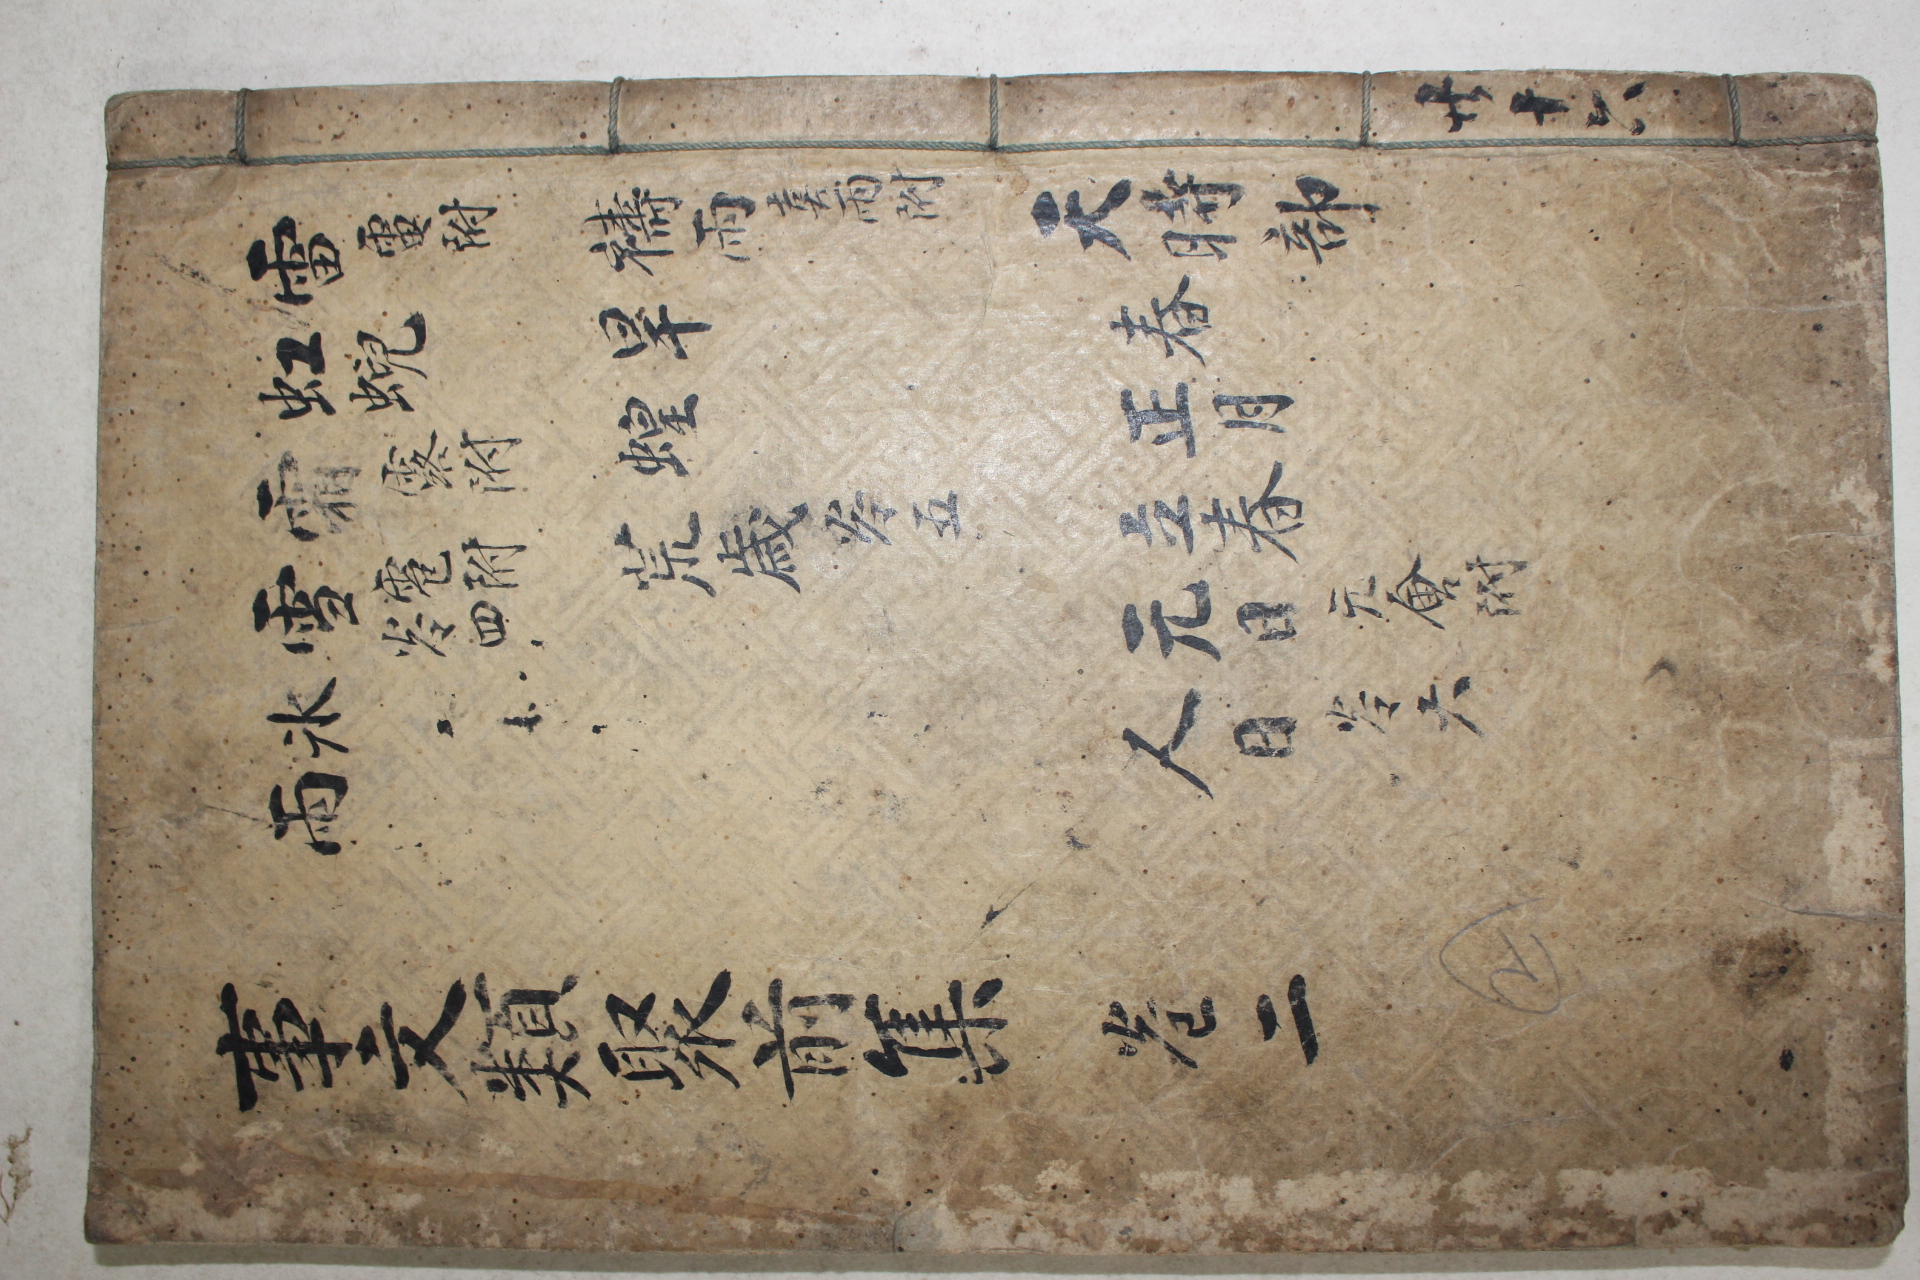 雷 電附
虹蜺
霜 露附
雪 雹附 卷四
氷
雨
禱雨 雨附
旱
蝗
荒歲 卷五
天時部
春
正月
立春
元日 元會附
人日 卷六
事文類聚前集 卷二
共十六
2